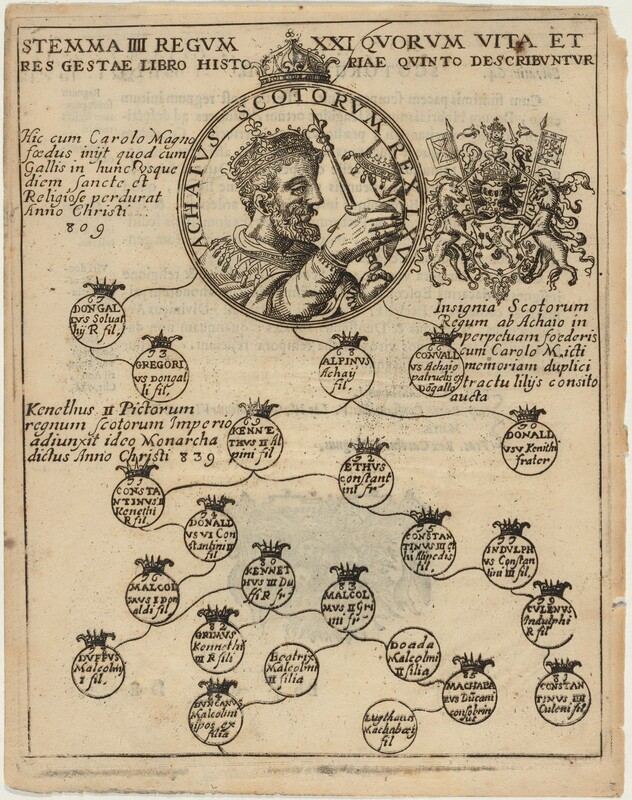 STEMMA IIII REGUM XXI QVORVM VITA ET
RES GESTAE LIBRO HISTORIAE QVINTO DESCRIBVNTVR
ACHAIVS SCOTORVM REX LXV
Hic cum Carolo Magno
fœdus inijt quod cum
Gallis in hunc usque
diem sancte et
Religiose perdurat
Anno Christi
809
Insignia Scotorum
Regum ab Achaio in
perpetuam foederis
cum Carolo M. icti
memoriam duplici
tractu lilijs consito
aucta
67
DONGAL
LVS Soluat
hij R fil.
73
GREGORI
VS Dongal
li fil.
68
ALPINVS
Achaij
fil.
66
CONVALL
VS Achaio
patruelis
Kenethus II Pictorum
regnum scotorum Imperio
adiunxit ideo Monarcha
dictus Anno Christi 839
69
KENNE
THVS II Al
pini fil
70
DONALD
Kenithi
frater
72
ETHVS
constant
ini fr
71
CONSTA
NTINVS II
Kenethi
R fil.
74
DONALD
VS VI Con
stantini II
fil
75
CONSTAN
TINVS III et
hi Alipedis
fil.
77
INDVLPH
VS Constan
tini III fil.
76
MALCOL
MVS I Don
aldi fil
80
KENNET
HVS III Du
ffi R fr
83
MALCOL
MVS II
fr
79
CVLENVS
Indulphi
R fil
82
GRIMVS
Kennethi
III R fili
DVFFVS
Malcolmi
I fil.
Beatrix
Malcolmi
II filia
Doada
Malcolmi
II filia
85
MACHABA
EVS Ducani
consobrin
us
81
CONSTAN
TINVS IIII
Culeni fil.
84
Malcolmi
nepos ex
filia
Lugthacus
Machabæi
fil